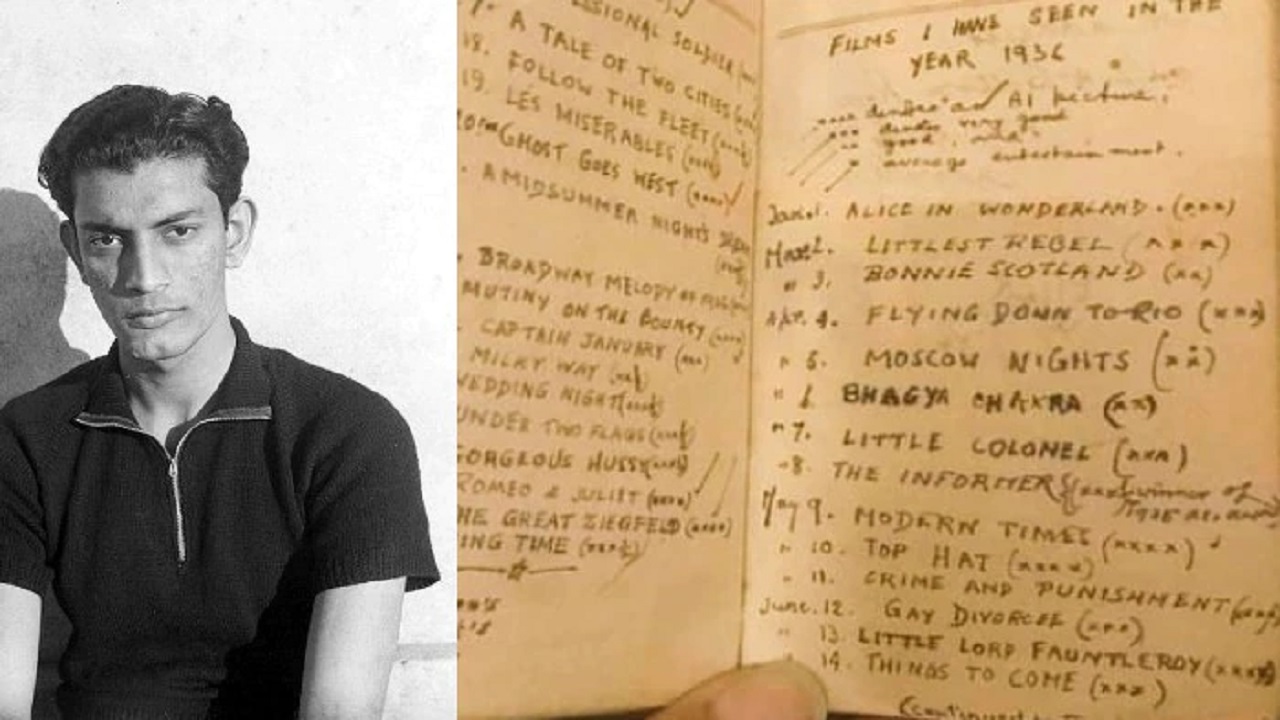 SSIONAL SOLDIER
A TALE OF TWO CITIES
18. FOLLOW THE FLEET (xxxx)
19. LES MISERABLES (xxxx)
GHOST GOES WEST (xxxx) ✓
A MIDSUMMER NIGHT'S
BROADWAY MELODY OF
MUTINY ON THE BOUNTY (xxxx)
CAPTAIN JANUARY (xxx)
MILKY WAY
WEDDING NIGHT
UNDER TWO FLAGS
GORGEOUS HUSSY
ROMEO & JULIET (xxxx)
HE GREAT ZIEGFELD (xxxx)
ING TIME
FILMS I HAVE SEEN IN THE
YEAR 1936
xxxx denotes an A1 picture,
xxx denotes very good
xx good, and
x average entertainment.
1. ALICE IN WONDERLAND. (xxx)
2. LITTLEST REBEL (xxx)
" 3. BONNIE SCOTLAND (xx)
Apr. 4. FLYING DOWN TO RIO (xxx)
" 5. MOSCOW NIGHTS (xxx)
" 6. BHAGYA CHAKRA (xx)
" 7. LITTLE COLONEL (xxx)
" 8. THE INFORMER winner of
1935
May 9. MODERN TIMES (xxxx)
" 10. TOP HAT (xxxx)
" 11. CRIME AND PUNISHMENT
June. 12. GAY DIVORCEE (xxx)
" 13. LITTLE LORD FAUNTLEROY (xxxx)
" 14. THINGS TO COME (xxx)
(continued